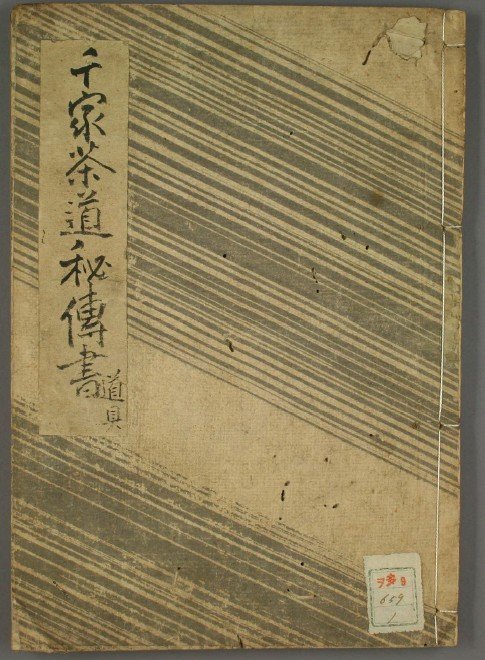 千家茶道秘傳書
道具
659
1